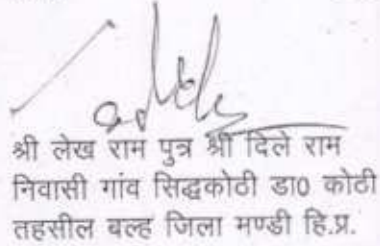 श्री लेख राम पुत्र श्री दिले राम
निवासी गांव सिद्धकोठी डा0 कोठी
तहसील बल्ह जिला मण्डी हि.प्र.